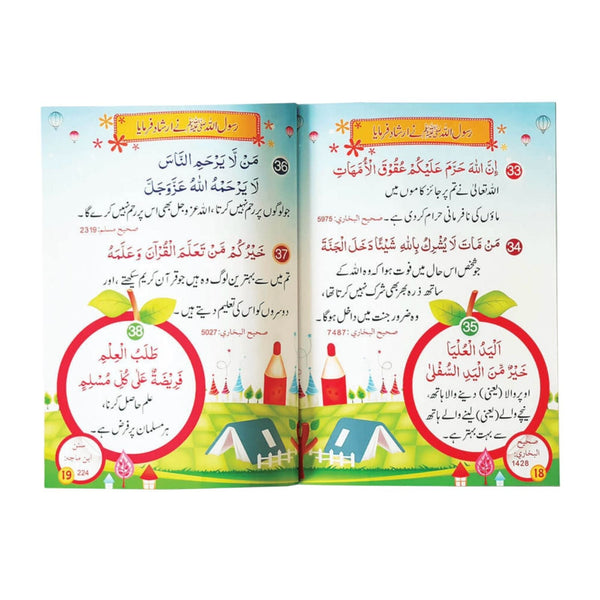 رسول اللہ ﷺ نے ارشاد فرمایا
33 إِنَّ اللهَ حَرَّمَ عَلَيْكُمْ عُقُوْقَ الْأُمَّهَاتِ
اللہ تعالیٰ نے تم پر جائز کاموں میں
ماؤں کی نافرمانی حرام کر دی ہے۔ صحيح البخاري: 5975
34 مَنْ مَاتَ لَا يُشْرِكُ بِاللهِ شَيْئًا دَخَلَ الْجَنَّةَ
جو شخص اس حال میں فوت ہوا کہ وہ اللہ کے
ساتھ ذرہ بھر بھی شرک نہیں کرتا تھا،
وہ ضرور جنت میں داخل ہوگا۔
صحيح البخاري: 7487
35
اَلْيَدُ الْعُلْيَا
خَيْرٌ مِّنَ الْيَدِ السُّفْلٰى
اوپر والا (یعنی) دینے والا ہاتھ،
نیچے والے (یعنی) لینے والے ہاتھ
سے بہت بہتر ہے۔
صحيح
البخاري:
1428
18
رسول اللہ ﷺ نے ارشاد فرمایا
36 مَنْ لَّا يَرْحَمِ النَّاسَ
لَا يَرْحَمْهُ اللهُ عَزَّوَجَلَّ
جو لوگوں پر رحم نہیں کرتا، اللہ عزوجل بھی اس پر رحم نہیں کرے گا۔
صحيح مسلم: 2319
37 خَيْرُكُمْ مَنْ تَعَلَّمَ الْقُرْآنَ وَعَلَّمَهُ
تم میں سے بہترین لوگ وہ ہیں جو قرآن کریم سیکھتے، اور
دوسروں کو اس کی تعلیم دیتے ہیں۔
صحيح البخاري: 5027
38
طَلَبُ الْعِلْمِ
فَرِيْضَةٌ عَلٰى كُلِّ مُسْلِمٍ
علم حاصل کرنا،
ہر مسلمان پر فرض ہے۔
سنن
ابن ماجه:
224
19